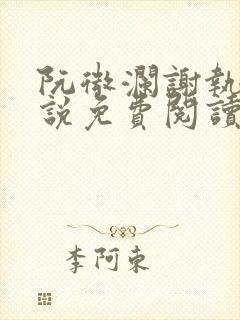 阮微瀾謝執
說免費閱讀
李阿東